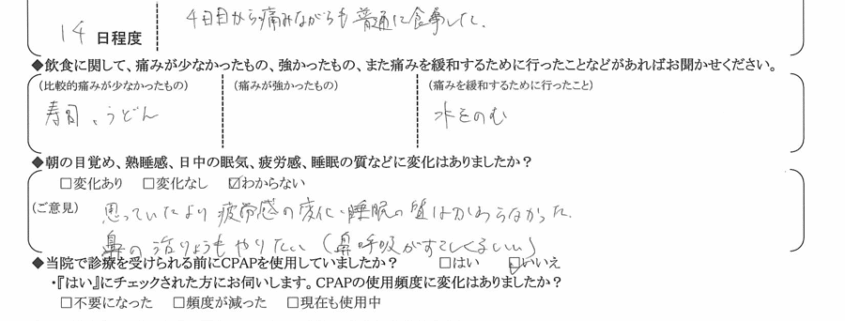 4日目から痛みながらも普通に食事した。
14 日程度
◆飲食に関して、痛みが少なかったもの、強かったもの、また痛みを緩和するために行ったことなどがあればお聞かせください。
(比較的痛みが少なかったもの) (痛みが強かったもの) (痛みを緩和するために行ったこと)
寿司、うどん 水をのむ
◆朝の目覚め、熟睡感、日中の眠気、疲労感、睡眠の質などに変化はありましたか?
□変化あり □変化なし ☑わからない
(ご意見) 思っていたより疲労感の変化、睡眠の質はかわらなかった。
鼻の治りょうもやりたい(鼻呼吸がすこしくるしい)
◆当院で診療を受けられる前にCPAPを使用していましたか? □はい ☑いいえ
・『はい』にチェックされた方にお伺いします。CPAPの使用頻度に変化はありましたか?
□不要になった □頻度が減った □現在も使用中